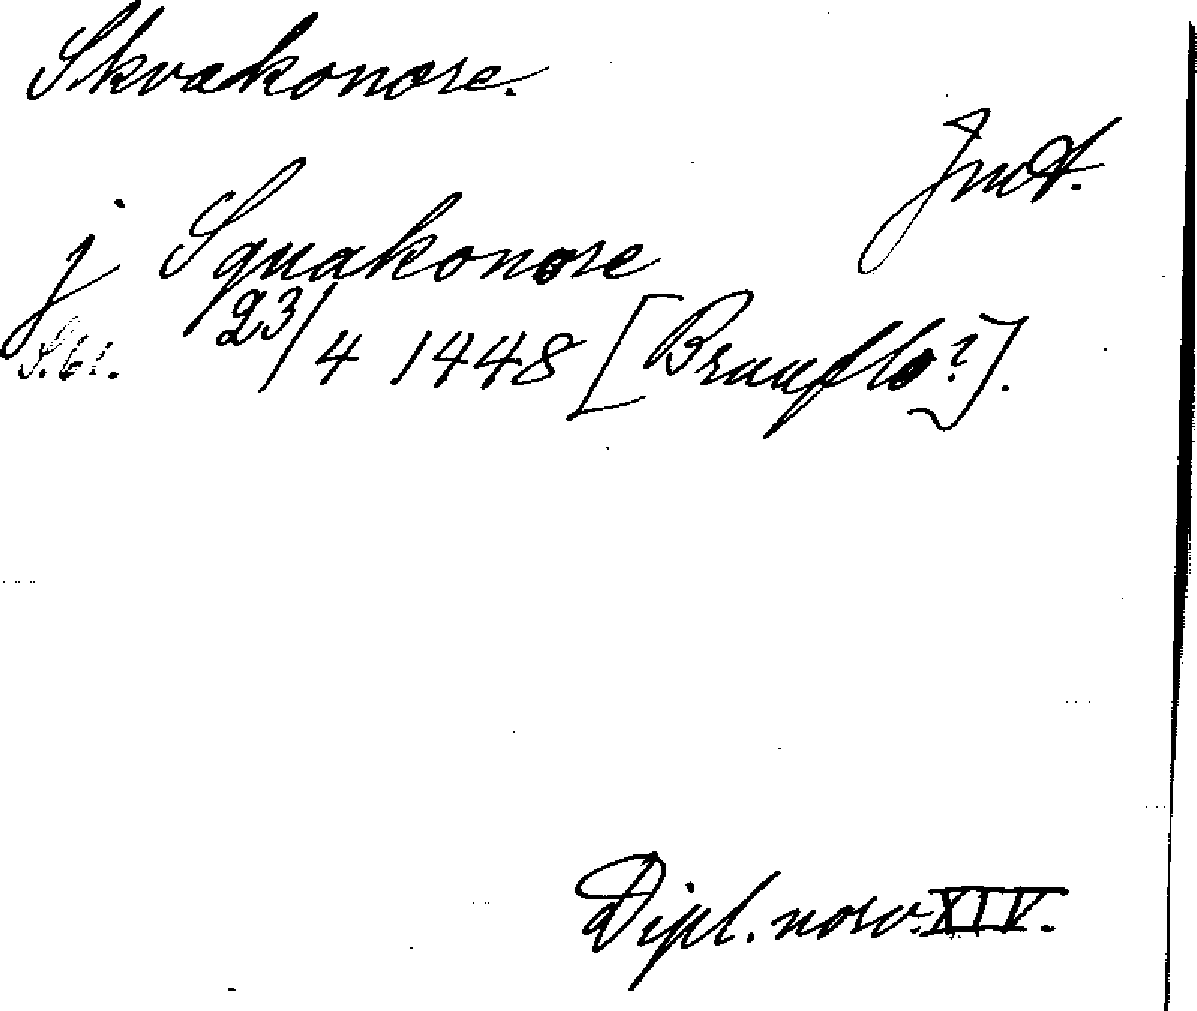 Skvakonore.
Jmt.
j Squakonore
S. 61. 23/4 1448 [Brauflo?].
Dipl. norv. XIV.